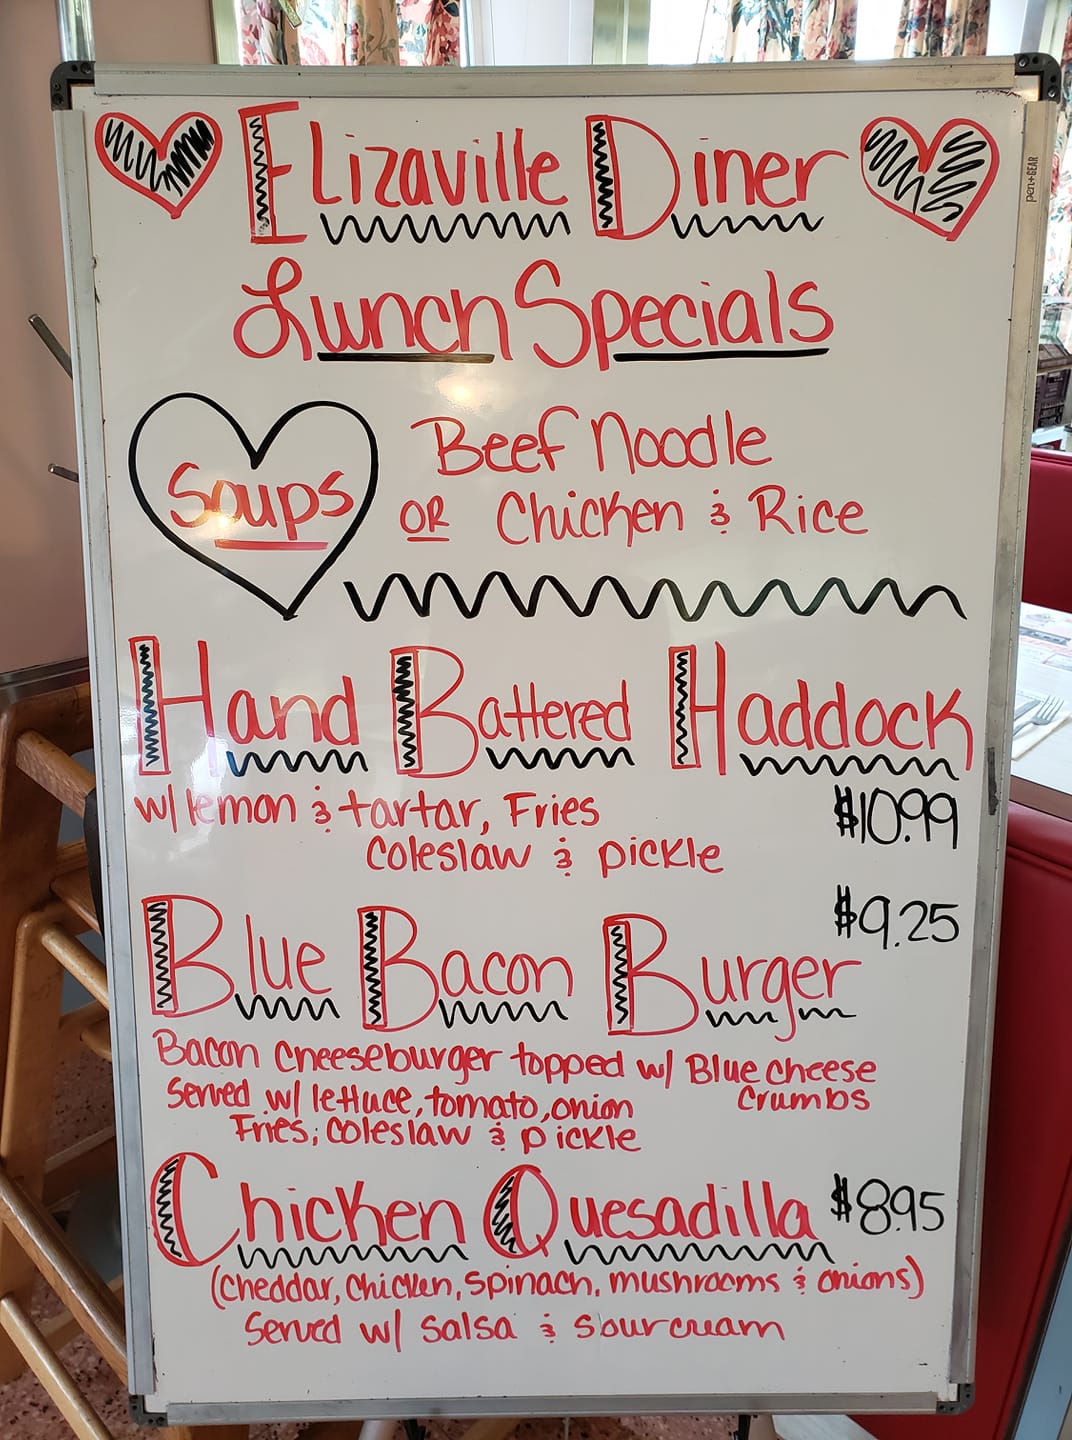 Elizaville Diner
Lunch Specials
Soups
Beef Noodle
OR Chicken & Rice
Hand Battered Haddock
w/ lemon & tartar, Fries
$10.99
Coleslaw & pickle
$9.25
Blue Bacon Burger
Bacon Cheeseburger topped w/ Blue cheese
Crumbs
Served w/ lettuce, tomato, onion
Fries, Coleslaw & pickle
Chicken Quesadilla $8.95
(Cheddar, Chicken, Spinach, mushrooms & onions)
Served w/ Salsa & Sour cream
pen+GEAR